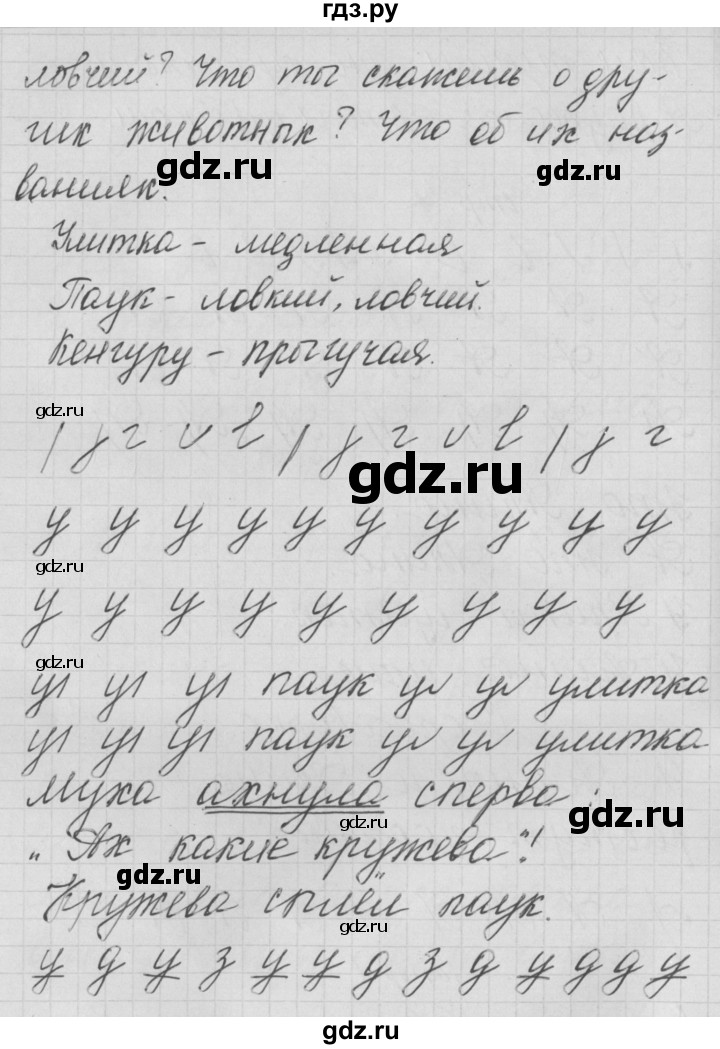 гдз.ру
ловчий? Что ты скажешь о дру-
гих животных? Что об их наз-
ваниях.
gdz.ru
gdz.ru
Улитка - медленная
Паук - ловкий, ловчий.
Кенгуру - прыгучая.
gdz.ru
gdz.ru
у у у у у у у у у у
gdz.ru
у у у у у у у у у
gdz.ru
у у у паук у у улитка
у у у паук у у улитка
Муха ахнула сперва:
gdz.ru
gdz.ru
„Ах какие кружева"!
gdz.ru
Кружева сплёл паук.
gdz.ru
у д у з у у д з д у д д у
gdz.ru